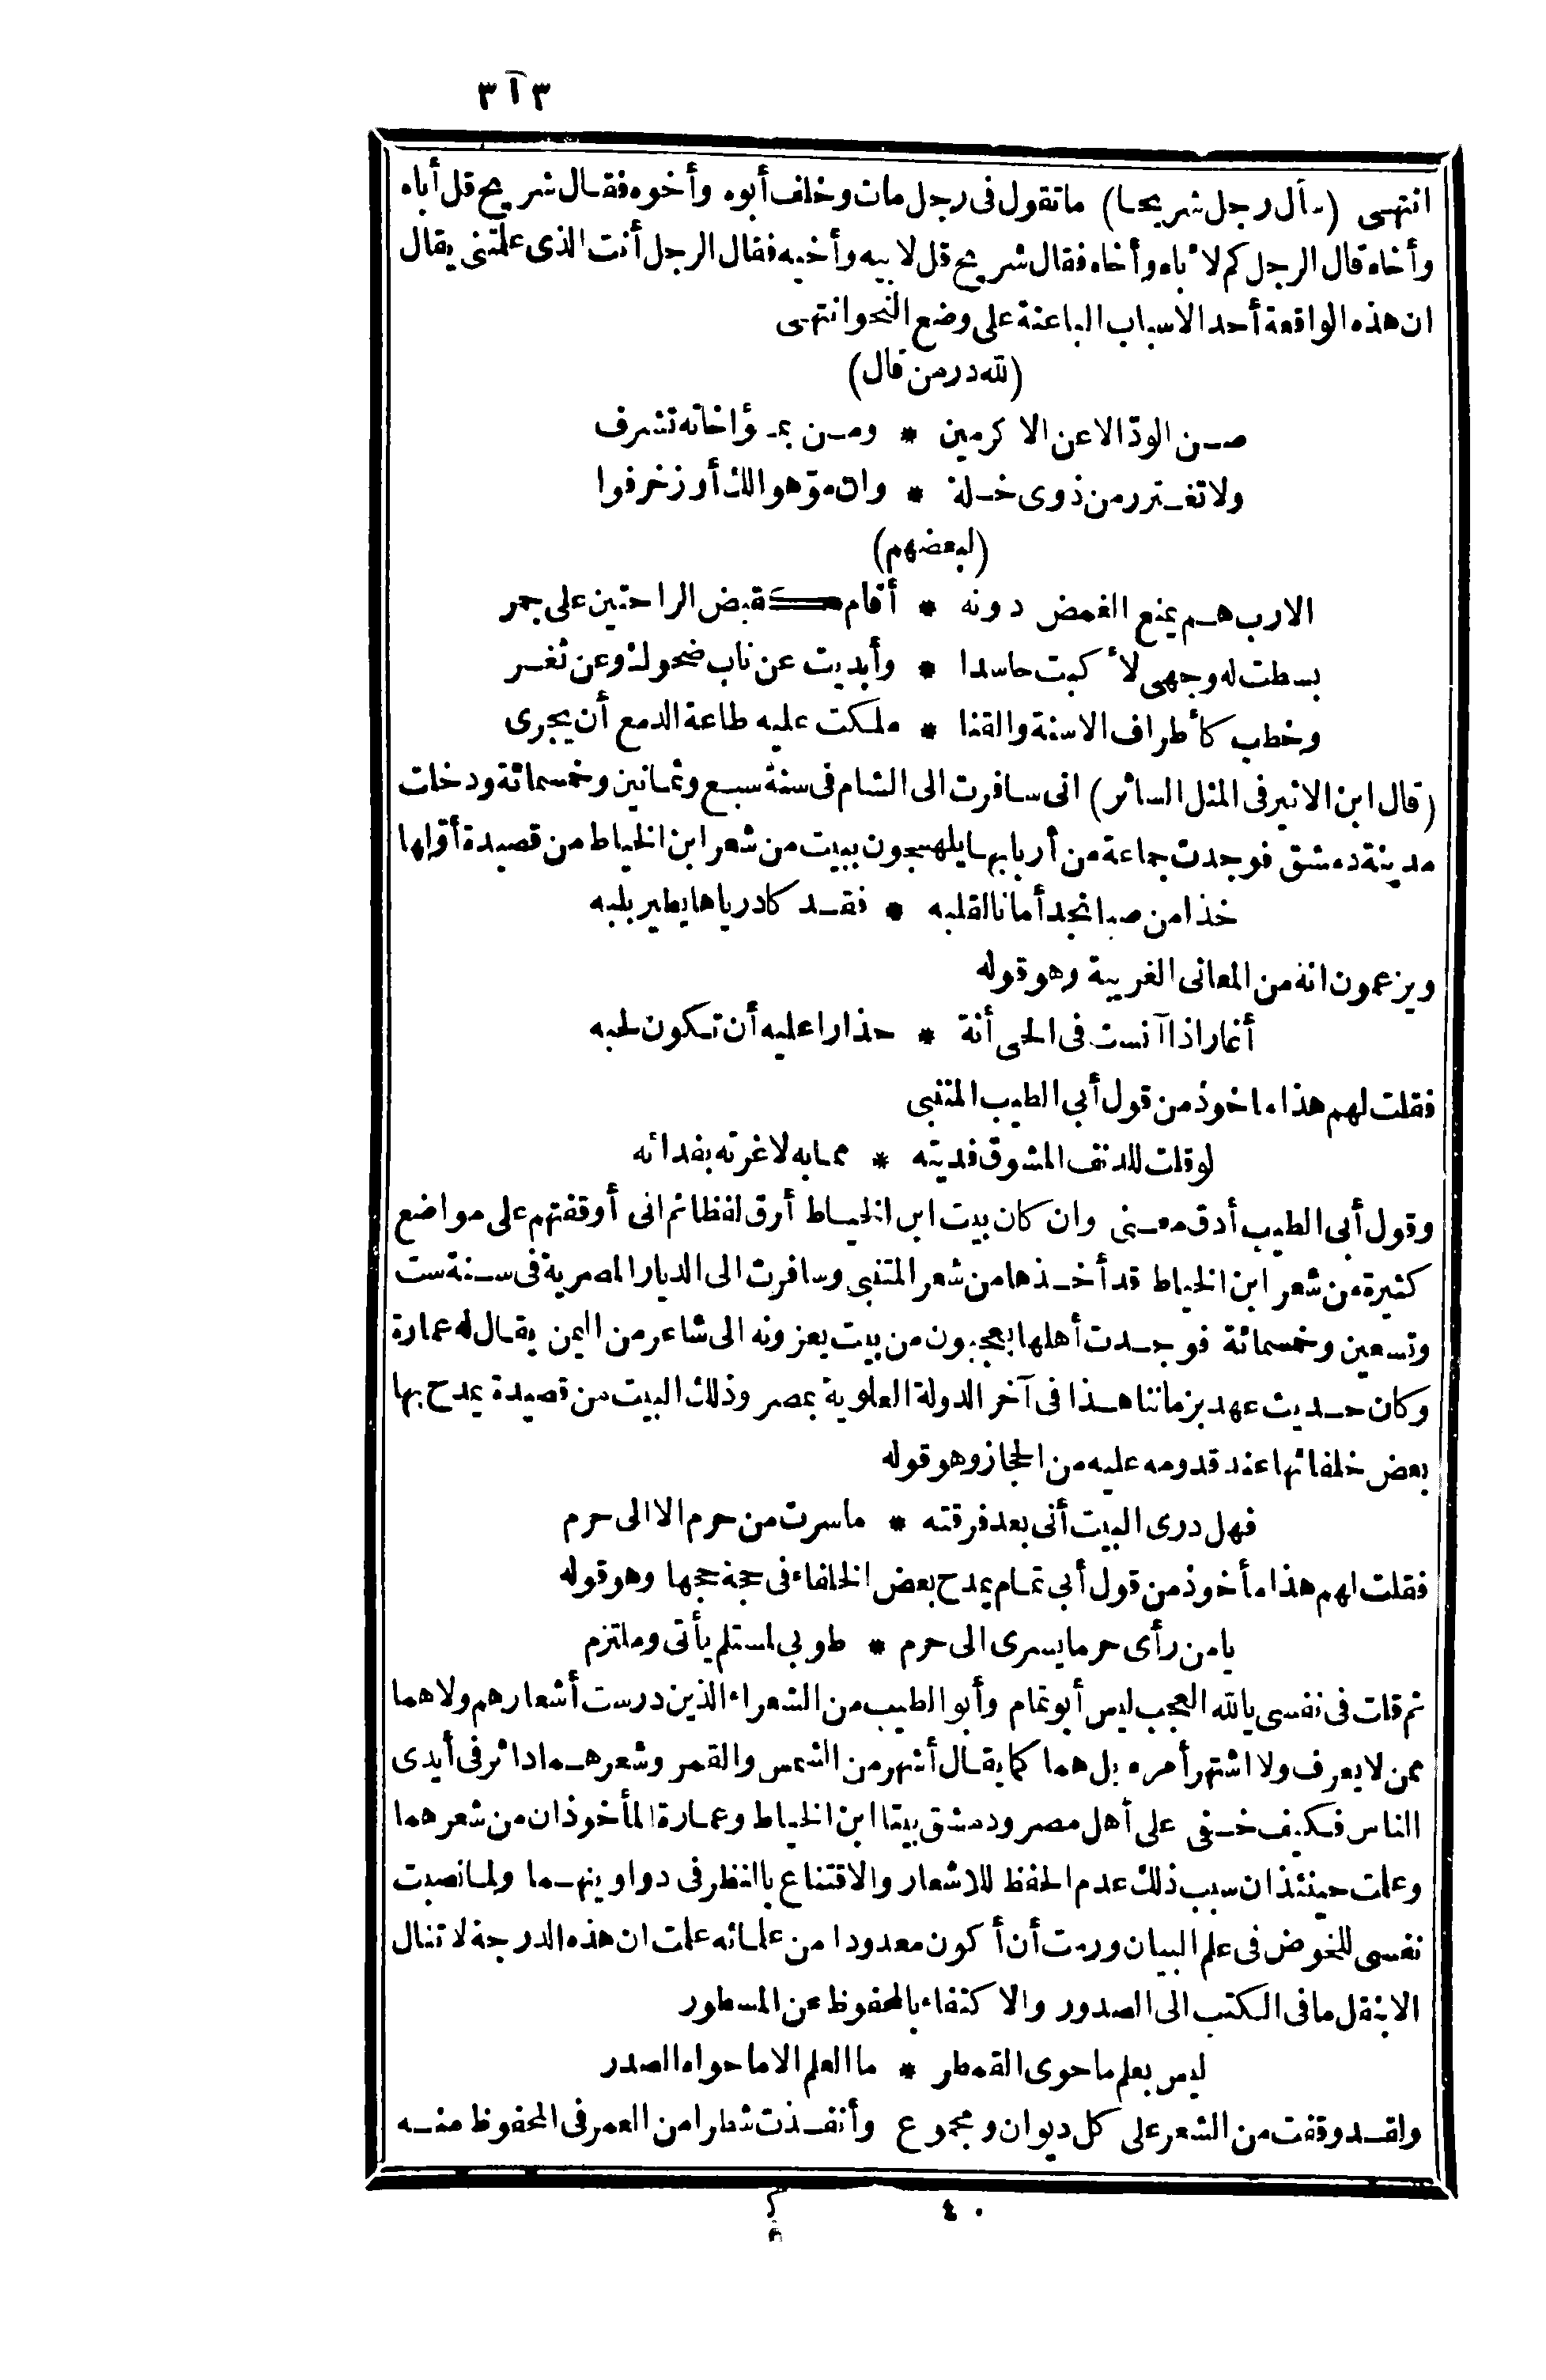 ٣١٣
انتهى (سأل رجل شريحا) ما تقول فى رجل مات وخلف أبوه وأخوه فقال شريح قل أباه
وأخاه قال الرجل كم لأباه وأخاه فقال شريح قل لابيه وأخيه فقال الرجل أنت الذى علمتنى يقال
ان هذه الواقعة أحد الاسباب الباعثة على وضع النحو انتهى
(لله در من قال)
صن الودّ الا عن الاكرمين * ومن بمؤاخاته تشرف
ولا تغترر من ذوى خلة * وان موّهوا لك أو زخرفوا
(لبعضهم)
الا رب هم يمنع الغمض دونه * أقام كقبض الراحتين على جمر
بسطت له وجهى لأكبت حاسدا * وأبديت عن ناب ضحوك وعن ثغر
وخطب كأطراف الاسنة والقنا * ملكت عليه طاعة الدمع أن يجرى
(قال ابن الاثير فى المثل السائر) انى سافرت الى الشام فى سنة سبع وثمانين وخمسمائة ودخلت
مدينة دمشق فوجدت جماعة من أربابها يلهجون ببيت من شعر ابن الخياط من قصيدة أوّلها
خذا من صبا نجد أمانا لقلبه * فقد كاد رياها يطير بلبه
ويزعمون انه من المعانى الغريبة وهو قوله
أغار اذا آنست فى الحى أنة * حذارا عليه أن تكون لحبه
فقلت لهم هذا ماخوذ من قول أبى الطيب المتنبى
لو قلت للدنف المشوق فديته * مما به لاغرته بفدائه
وقول أبى الطيب أدق معنى وان كان بيت ابن الخياط أرق لفظا ثم انى أوقفتهم على مواضع
كثيرة من شعر ابن الخياط قد أخذها من شعر المتنبى وسافرت الى الديار المصرية فى سنة ست
وتسعين وخمسمائة فوجدت أهلها يعجبون من بيت يعزونه الى شاعر من اليمن يقال له عمارة
وكان حديث عهد بزماننا هذا فى آخر الدولة العلوية بمصر وذلك البيت من قصيدة يمدح بها
بعض خلفائها عند قدومه عليه من الحجاز وهو قوله
فهل درى البيت أنى بعد فرقته * ما سرت من حرم الا الى حرم
فقلت لهم هذا مأخوذ من قول أبى تمام يمدح بعض الخلفاء فى حجة حجها وهو قوله
يا من رأى حرما يسرى الى حرم * طوبى لمستلم يأتى وملتزم
ثم قلت فى نفسى يا لله العجب ليس أبو تمام وأبو الطيب من الشعراء الذين درست أشعارهم ولا هما
ممن لا يعرف ولا اشتهر أمره بل هما كما يقال أشهر من الشمس والقمر وشعرهما دائر فى أيدى
الناس فكيف خفى على أهل مصر ودمشق بيتا ابن الخياط وعمارة المأخوذان من شعرهما
وعلمت حينئذ ان سبب ذلك عدم الحفظ للاشعار والاقتناع بالنظر فى دواوينهما ولما نصبت
نفسى للخوض فى علم البيان ورمت أن أكون معدودا من علمائه علمت ان هذه الدرجة لا تنال
الا بنقل ما فى الكتب الى الصدور والاكتفاء بالمحفوظ عن المسطور
ليس بعلم ما حوى القمطر * ما العلم الا ما حواه الصدر
ولقد وقفت من الشعر على كل ديوان ومجموع وأنفذت شطرا من العمر فى المحفوظ منه
٤٠